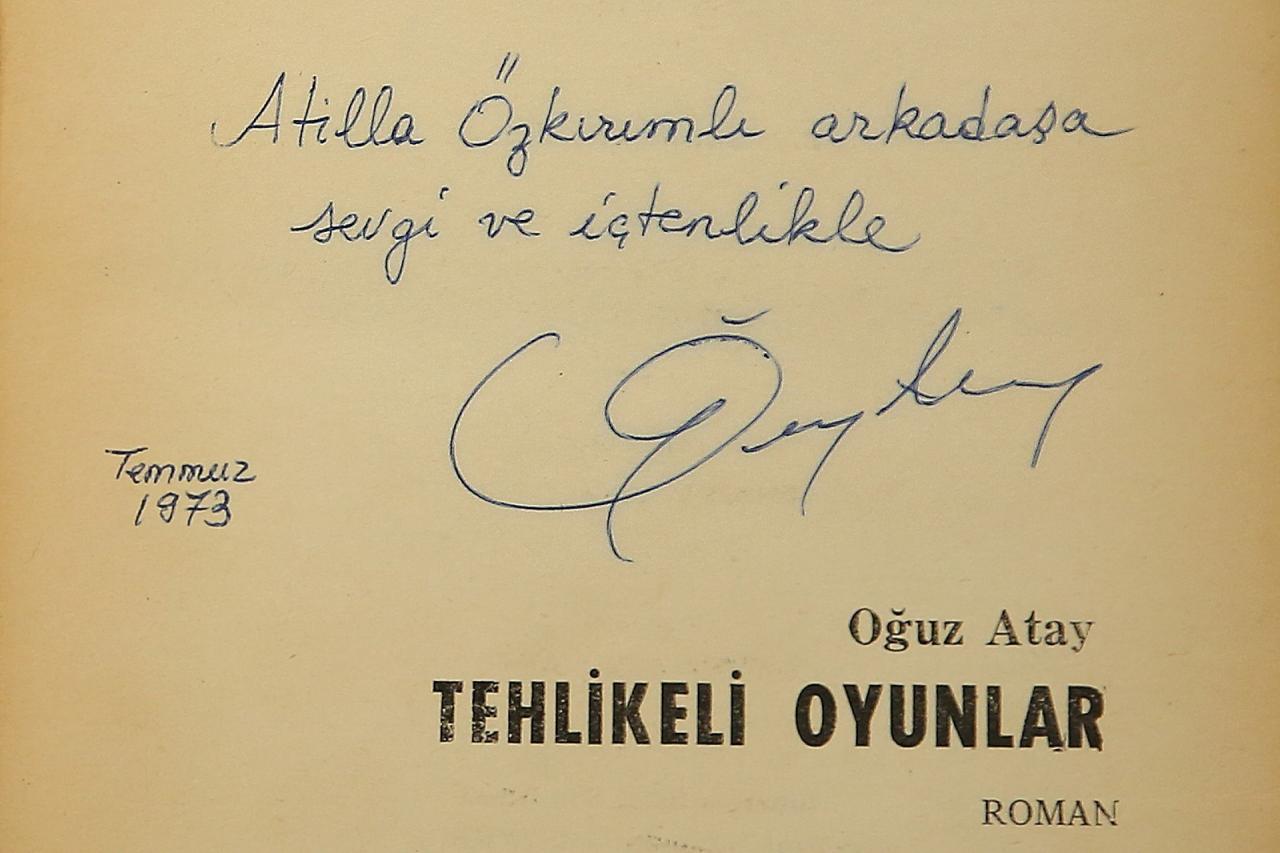 Atilla Özkırımlı arkadaşa
sevgi ve içtenlikle
Temmuz
1973
Oğuz Atay
TEHLİKELİ OYUNLAR
ROMAN